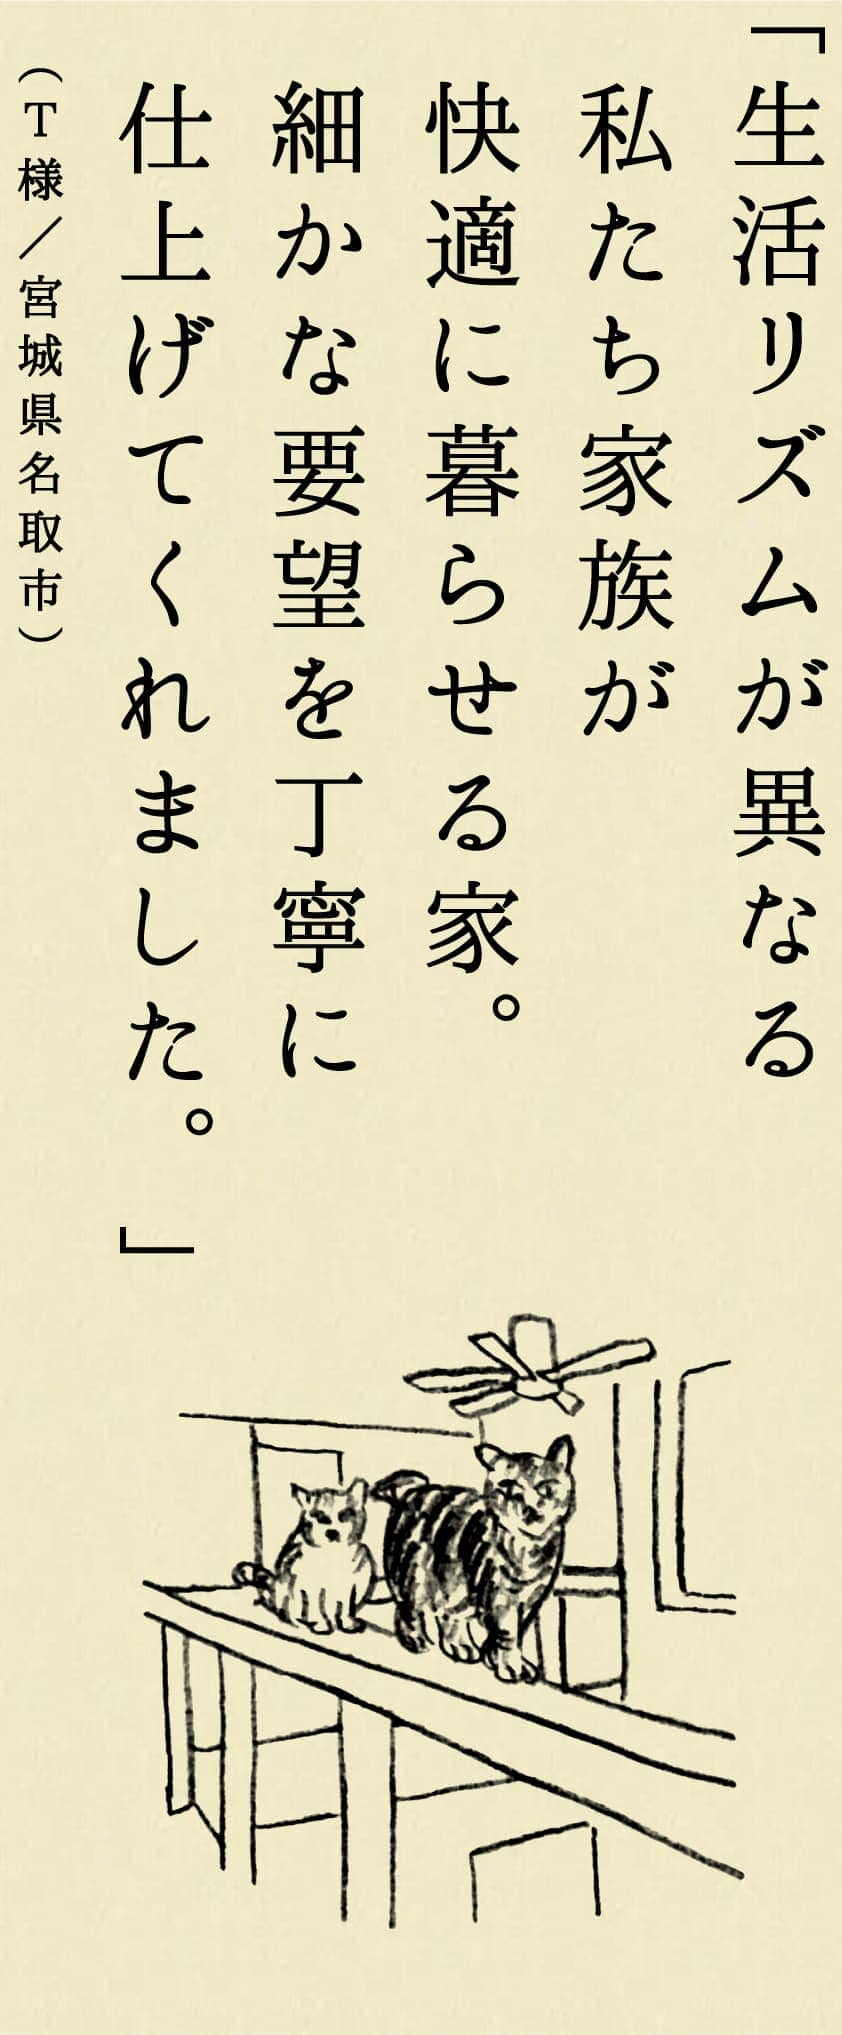 「生活リズムが異なる
私たち家族が
快適に暮らせる家。
細かな要望を丁寧に
仕上げてくれました。」
（T様／宮城県名取市）